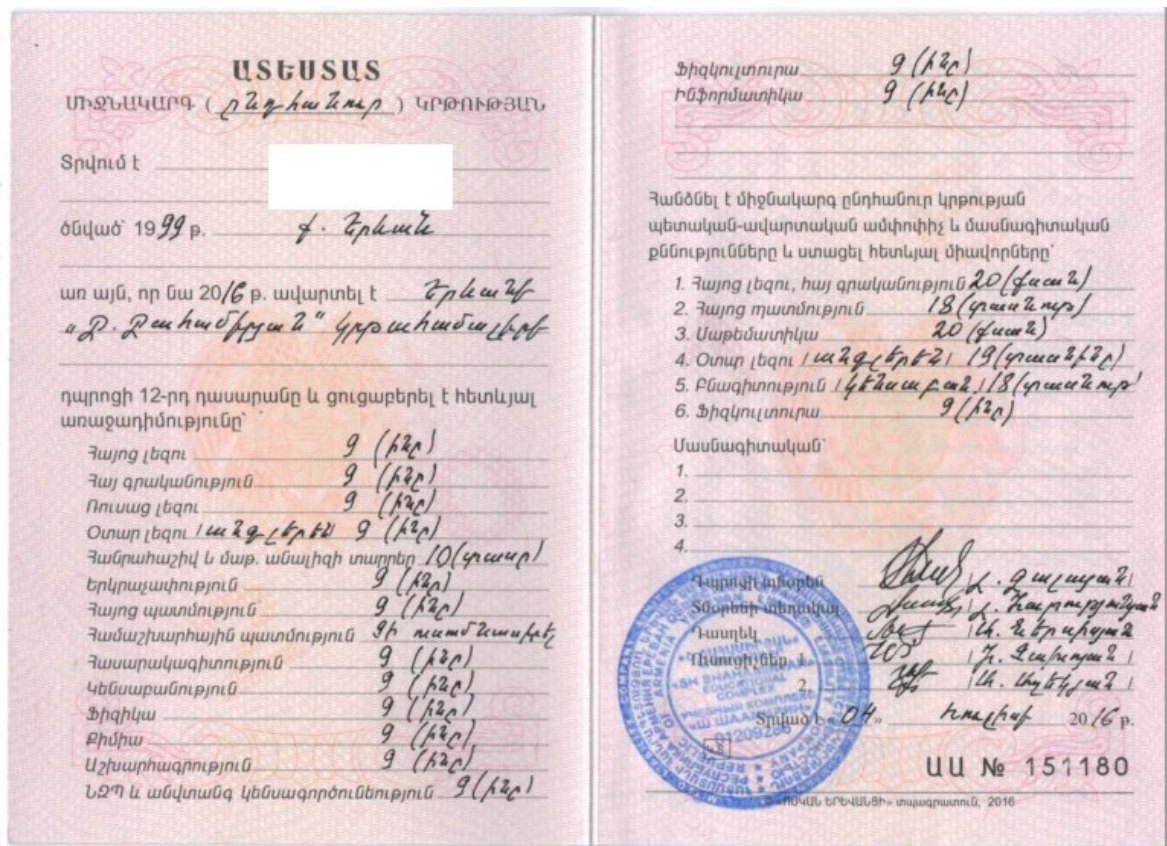 ԱՏԵՍՏԱՏ
ՄԻՋՆԱԿԱՐԳ ( ընդհանուր ) ԿՐԹՈՒԹՅԱՆ
Տրվում է
ծնված՝ 1999 թ. ք. Երևան
առ այն, որ նա 2016 թ. ավարտել է Երևանի
« Շ. Շահամիրյան" կրթահամալիրի
դպրոցի 12-րդ դասարանը և ցուցաբերել է հետևյալ
առաջադիմությունը՝
Հայոց լեզու 9 (ինը)
Հայ գրականություն 9 (ինը)
Ռուսաց լեզու 9 (ինը)
Օտար լեզու /անգլերեն/ 9 (ինը)
Հանրահաշիվ և մաթ. անալիզի տարրեր 10 (տասը)
Երկրաչափություն 9 (ինը)
Հայոց պատմություն 9 (ինը)
Համաշխարհային պատմություն Չի ուսումնասիրել
Հասարակագիտություն 9 (ինը)
Կենսաբանություն 9 (ինը)
Ֆիզիկա 9 (ինը)
Քիմիա 9 (ինը)
Աշխարհագրություն 9 (ինը)
ՆԶՊ և անվտանգ կենսագործունեություն 9 (ինը)
Ֆիզկուլտուրա 9 (ինը)
Ինֆորմատիկա 9 (ինը)
Հանձնել է միջնակարգ ընդհանուր կրթության
պետական-ավարտական ամփոփիչ և մասնագիտական
քննությունները և ստացել հետևյալ միավորները՝
1. Հայոց լեզու, հայ գրականություն 20 (քսան)
2. Հայոց պատմություն 18 (տասնութ)
3. Մաթեմատիկա 20 (քսան)
4. Օտար լեզու /անգլերեն/ 19 (տասնինը)
5. Բնագիտություն /կենսաբան./ 18 (տասնութ)
6. Ֆիզկուլտուրա 9 (ինը)
Մասնագիտական՝
1.
2.
3.
4.
Դպրոցի տնօրեն
Տնօրենի տեղակալ
Դասղեկ
Ուսուցիչներ 1.
2.
«SH SHAHAMIRIAN»
EDUCATIONAL
COMPLEX
01209286
Տրված է « 04 » հուլիսի 2016 թ.
ԱԱ № 151180
© «ՈՍԿԱՆ ԵՐԵՎԱՆՑԻ» տպագրատուն, 2016